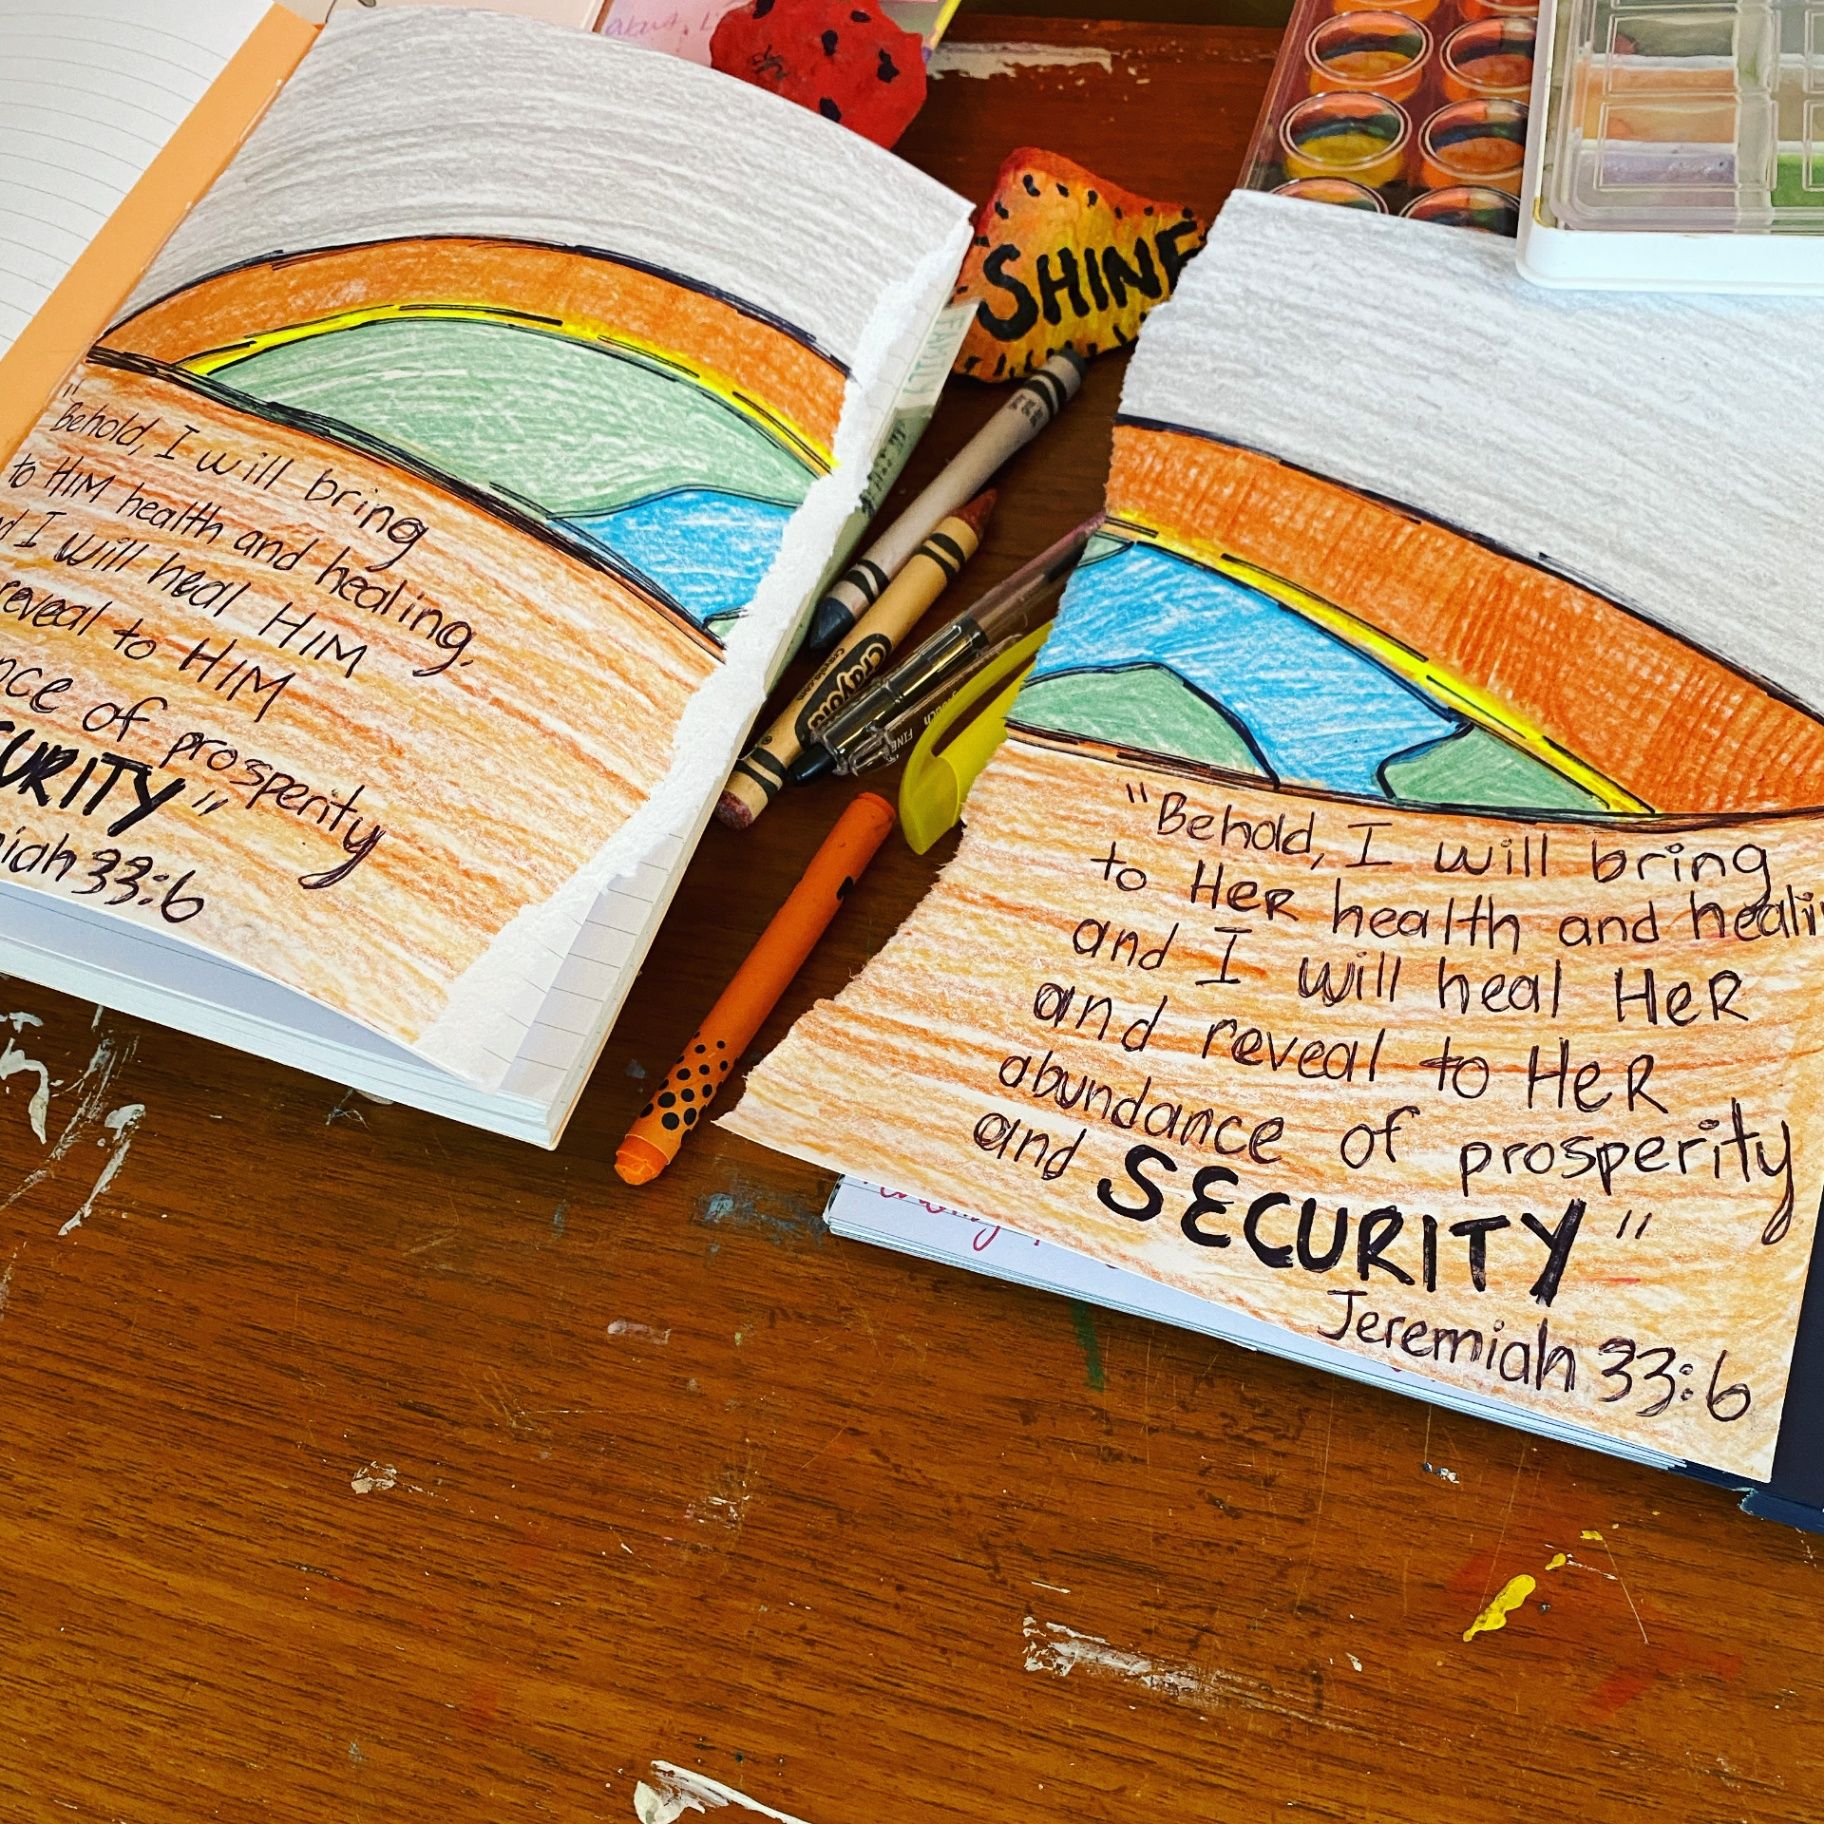 "Behold, I will bring
to HIM health and healing,
I will heal HIM
reveal to HIM
of prosperity
SECURITY"
33:6
SHINE
Crayola
FINE
"Behold, I will bring
to HeR health and
and I will heal HeR
and reveal to HeR
abundance of prosperity
and SECURITY"
Jeremiah 33:6